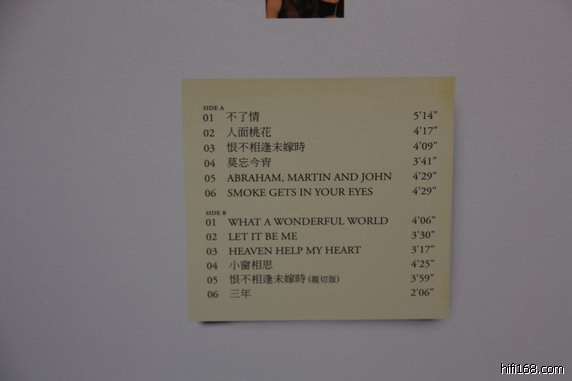 SIDE A
01 不了情 5'14"
02 人面桃花 4'17"
03 恨不相逢未嫁時 4'09"
04 莫忘今宵 3'41"
05 ABRAHAM, MARTIN AND JOHN 4'29"
06 SMOKE GETS IN YOUR EYES 4'29"
SIDE B
01 WHAT A WONDERFUL WORLD 4'06"
02 LET IT BE ME 3'30"
03 HEAVEN HELP MY HEART 3'17"
04 小窗相思 4'25"
05 恨不相逢未嫁時 (親切版) 3'59"
06 三年 2'06"
hifi168.com